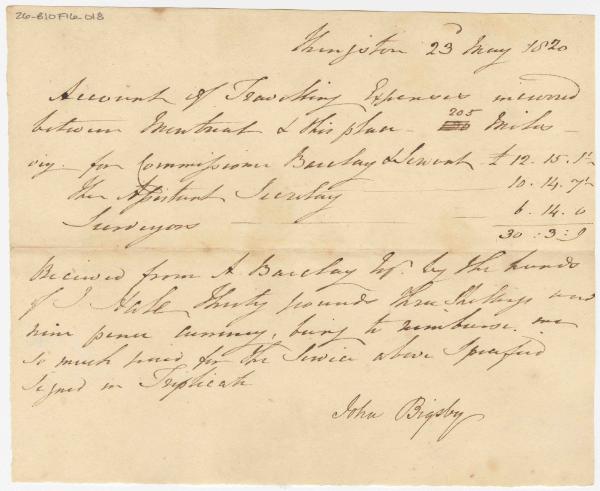 26-B10F16-018
Kingston 23d May 1820
Account of Travelling Expenses incurred
between Montreal & this place - 205 Miles -
viz. for Commissioner Barclay & Servant £ 12. 15. 1½
The Assistant Secretary 10. 14. 7½
Surveyors 6. 14. 0
30 : 3 : 9
Received from A. Barclay Esqr. by the hands
of J. Hale Thirty pounds three Shillings and
nine pence currency, being to reimburse me
so much paid for the Service above Specified
Signed in Triplicate
John Bigsby